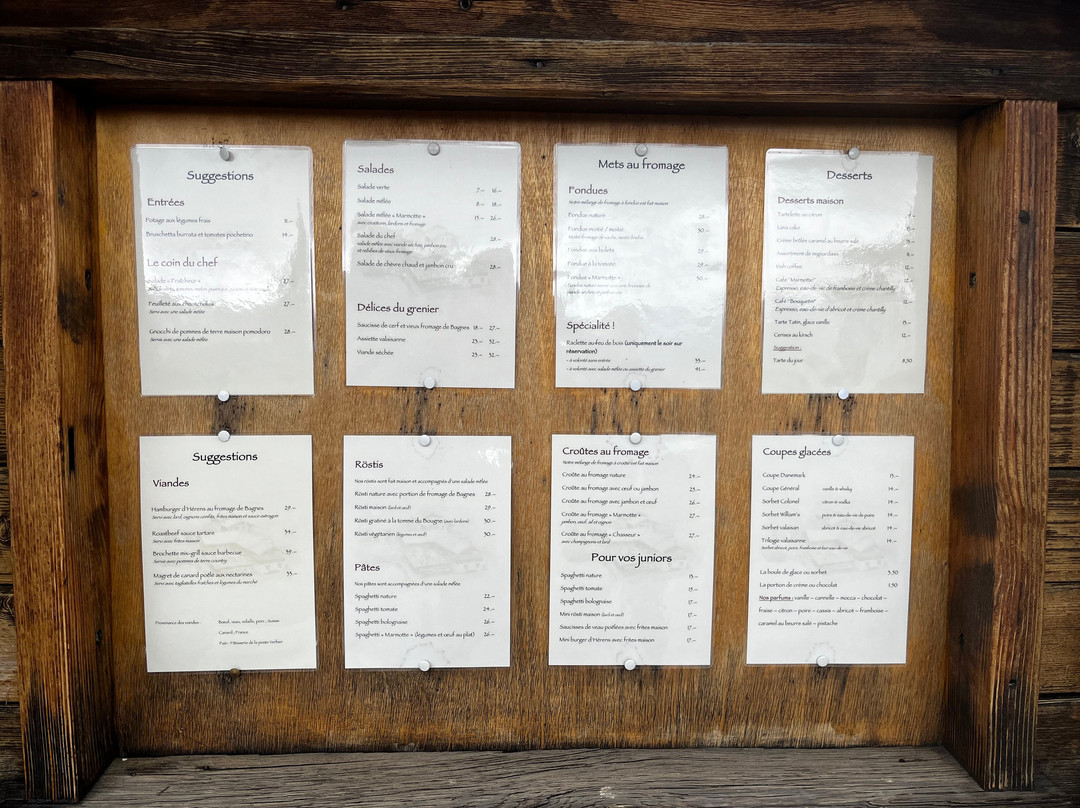 Suggestions
Entrées
Potage aux légumes frais 8.–
Bruschetta burrata et tomates pachetino 19.–
Le coin du chef
27.–
Feuilleté aux 27.–
Servi avec une salade mêlée
Gnocchi de pommes de terre maison pomodoro 28.–
Servis avec une salade mêlée
Salades
Salade verte 7.– 16.–
Salade mêlée 8.– 18.–
Salade mêlée « Marmotte » 15.– 26.–
avec croûtons, lardons et fromage
Salade du chef 28.–
salade mêlée avec viande séchée, jambon cru
et rebibes de vieux fromage
Salade de chèvre chaud et jambon cru 28.–
Délices du grenier
Saucisse de cerf et vieux fromage de Bagnes 18.– 27.–
Assiette valaisanne 23.– 32.–
Viande séchée 23.– 32.–
Mets au fromage
Fondues
Notre mélange de fromage à fondue est fait maison
Fondue nature 28.–
Fondue moitié / moitié 30.–
Fondue aux bolets 29.–
Fondue à la tomate 29.–
Fondue « Marmotte » 30.–
Spécialité !
Raclette au feu de bois (uniquement le soir sur
réservation)
- à volonté sans entrée 35.–
- à volonté avec salade mêlée ou assiette du grenier 41.–
Desserts
Desserts maison
Tartelette au citron
Crème brûlée caramel au beurre salé
Assortiment de mignardises
Irish coffee 12.–
Café "Marmotte" 12.–
Espresso, eau-de-vie de framboise et crème chantilly
Café "Bouquetin" 12.–
Espresso, eau-de-vie d'abricot et crème chantilly
Tarte Tatin, glace vanille 13.–
Cerises au kirsch 12.–
Suggestion :
Tarte du jour 8,50
Suggestions
Viandes
Hamburger d'Hérens au fromage de Bagnes 29.–
Servi avec lard, oignons confits, frites maison et sauce estragon
Roastbeef sauce tartare 34.–
Servi avec frites maison
Brochette mix-grill sauce barbecue 39.–
Servie avec pommes de terre country
Magret de canard poêlé aux nectarines 35.–
Servi avec tagliatelles fraîches et légumes du marché
Provenance des viandes : Bœuf, veau, volaille, porc : Suisse
Canard : France
Pain : Pâtisserie de la poste Verbier
Röstis
Nos röstis sont fait maison et accompagnés d'une salade mêlée
Rösti nature avec portion de fromage de Bagnes 28.–
Rösti maison (lard et œuf) 29.–
Rösti gratiné à la tomme du Bougne (avec lardons) 30.–
Rösti végétarien (légumes et œuf) 30.–
Pâtes
Nos pâtes sont accompagnées d'une salade mêlée
Spaghetti nature 22.–
Spaghetti tomate 24.–
Spaghetti bolognaise 26.–
Spaghetti « Marmotte » (légumes et œuf au plat) 26.–
Croûtes au fromage
Notre mélange de fromage à croûte est fait maison
Croûte au fromage nature 24.–
Croûte au fromage avec œuf ou jambon 25.–
Croûte au fromage avec jambon et œuf 26.–
Croûte au fromage « Marmotte » 27.–
jambon, œuf, ail et oignon
Croûte au fromage « Chasseur » 27.–
avec champignons et lard
Pour vos juniors
Spaghetti nature 13.–
Spaghetti tomate 15.–
Spaghetti bolognaise 17.–
Mini rösti maison (lard et œuf) 17.–
Saucisses de veau poêlées avec frites maison 17.–
Mini burger d'Hérens avec frites maison 17.–
Coupes glacées
Coupe Danemark 13.–
Coupe Général vanille & whisky 14.–
Sorbet Colonel citron & vodka 14.–
Sorbet William's poire & eau-de-vie de poire 14.–
Sorbet valaisan abricot & eau-de-vie abricot 14.–
Trilogie valaisanne 14.–
Sorbet abricot, poire, framboise et leur eau-de-vie
La boule de glace ou sorbet 3.50
La portion de crème ou chocolat 1.50
Nos parfums : vanille – cannelle – mocca – chocolat –
fraise – citron – poire – cassis – abricot – framboise –
caramel au beurre salé – pistache